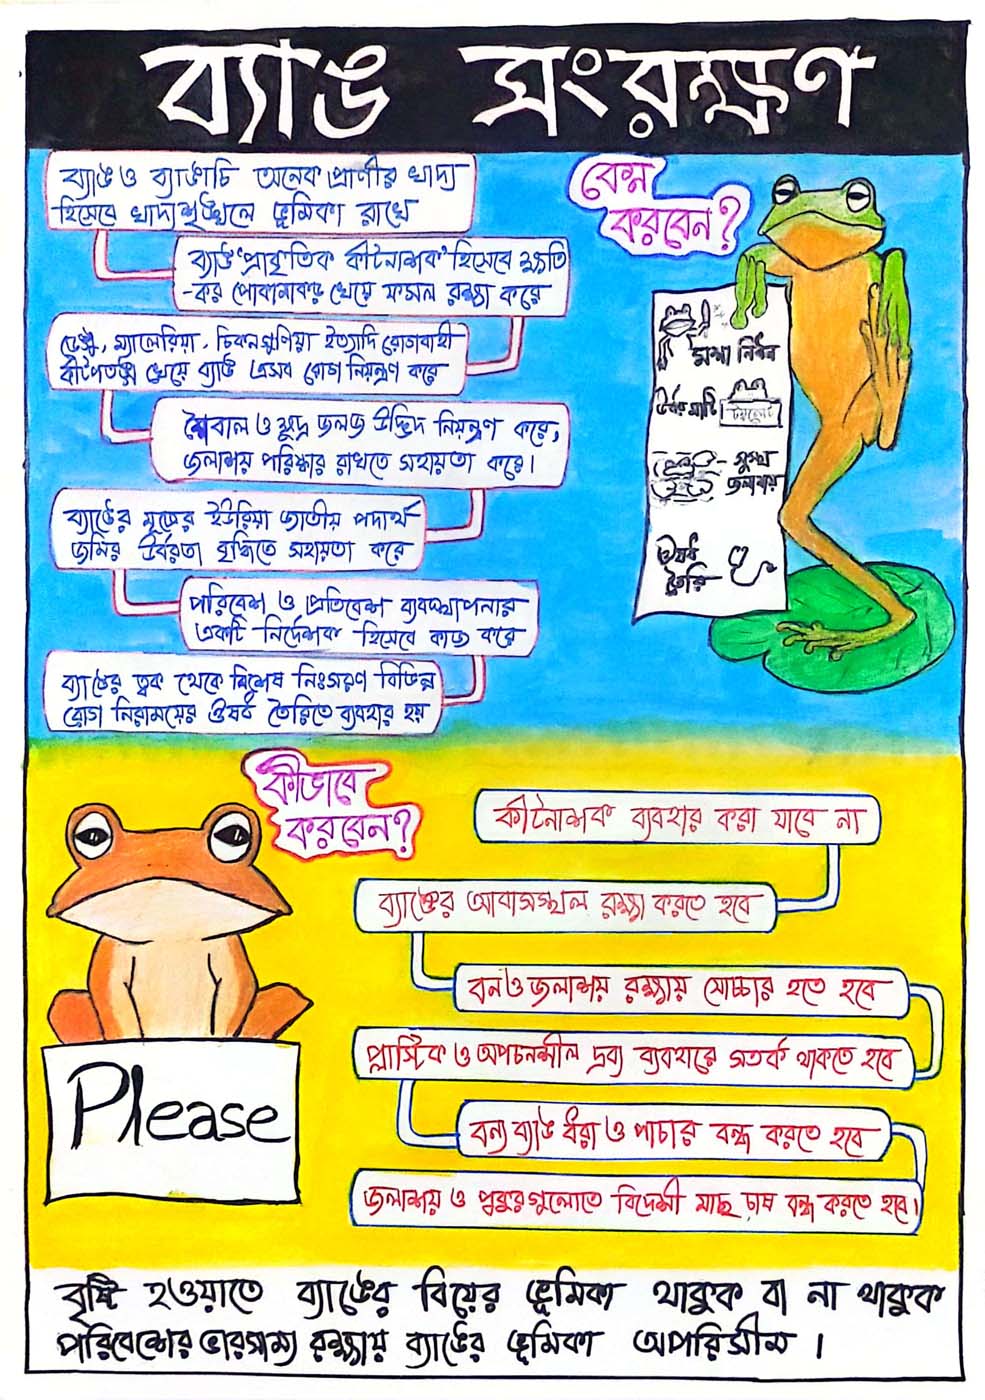 ব্যাঙ সংরক্ষণ
ব্যাঙ ও ব্যাঙাচি অনেক প্রাণীর খাদ্য
হিসেবে খাদ্যশৃঙ্খলে ভূমিকা রাখে
ব্যাঙ 'প্রাকৃতিক কীটনাশক' হিসেবে ক্ষতি
-কর পোকামাকড় খেয়ে ফসল রক্ষা করে
ডেঙ্গু, ম্যালেরিয়া, চিকনগুনিয়া ইত্যাদি রোগবাহী
কীটপতঙ্গ খেয়ে ব্যাঙ এসব রোগ নিয়ন্ত্রণ করে
শৈবাল ও ক্ষুদ্র জলজ উদ্ভিদ নিয়ন্ত্রণ করে,
জলাশয় পরিষ্কার রাখতে সহায়তা করে।
ব্যাঙের মূত্রের ইউরিয়া জাতীয় পদার্থ
জমির উর্বরতা বৃদ্ধিতে সহায়তা করে
পরিবেশ ও প্রতিবেশ ব্যবস্থাপনার
একটি নির্দেশক হিসেবে কাজ করে
ব্যাঙের ত্বক থেকে বিশেষ নিঃসরণ বিভিন্ন
রোগ নিরাময়ের ঔষধ তৈরিতে ব্যবহার হয়
কেন
করবেন?
মশা নিধন
উর্বর মাটি
টয়লেট
সুস্থ
জলাশয়
ঔষধ
তৈরি
কীভাবে
করবেন?
কীটনাশক ব্যবহার করা যাবে না
ব্যাঙের আবাসস্থল রক্ষা করতে হবে
বন ও জলাশয় রক্ষায় সোচ্চার হতে হবে
প্লাস্টিক ও অপচনশীল দ্রব্য ব্যবহারে সতর্ক থাকতে হবে
বন্য ব্যাঙ ধরা ও পাচার বন্ধ করতে হবে
জলাশয় ও পুকুরগুলোতে বিদেশী মাছ চাষ বন্ধ করতে হবে।
Please
বৃষ্টি হওয়াতে ব্যাঙের বিয়ের ভূমিকা থাকুক বা না থাকুক
পরিবেশের ভারসাম্য রক্ষায় ব্যাঙের ভূমিকা অপরিসীম।